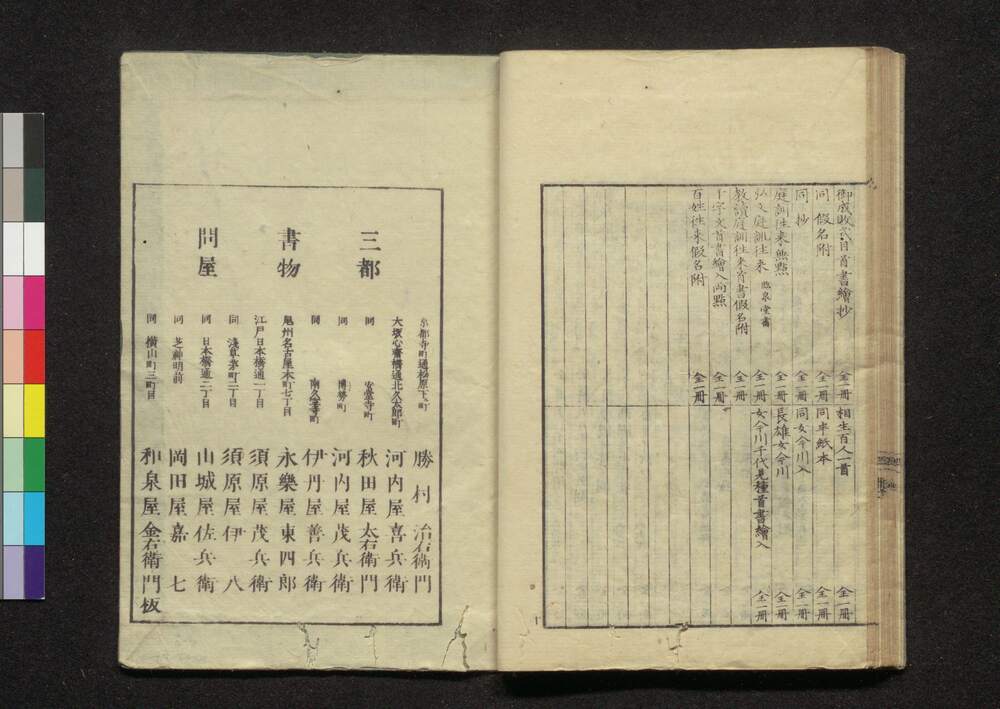 御成敗式目首書繪抄 全一冊
同 假名附 全一冊
同 抄 全一冊
庭訓往来無點 全一冊
弘文庭訓往来 臨泉堂書 全一冊
教讀庭訓往来首書假名附 全一冊
千字文首書繪入両點 全一冊
百姓往来假名附 全一冊
相生百人一首 全一冊
同半紙本 全一冊
同女今川入 全一冊
長雄女今川 全一冊
女今川千代見種首書繪入 全一冊
三都
書物
問屋
京都寺町通松原下ル町 勝村治右衛門
大坂心齋橋通北久太郎町 河内屋喜兵衛
同 安堂寺町 秋田屋太右衛門
同 博労町 河内屋茂兵衛
同 南久宝寺町 伊丹屋善兵衛
尾州名古屋本町七丁目 永樂屋東四郎
江戸日本橋通一丁目 須原屋茂兵衛
同 淺草茅町二丁目 須原屋伊八
同 日本橋通二丁目 山城屋佐兵衛
同 芝神明前 岡田屋嘉七
同 横山町三町目 和泉屋金右衛門板